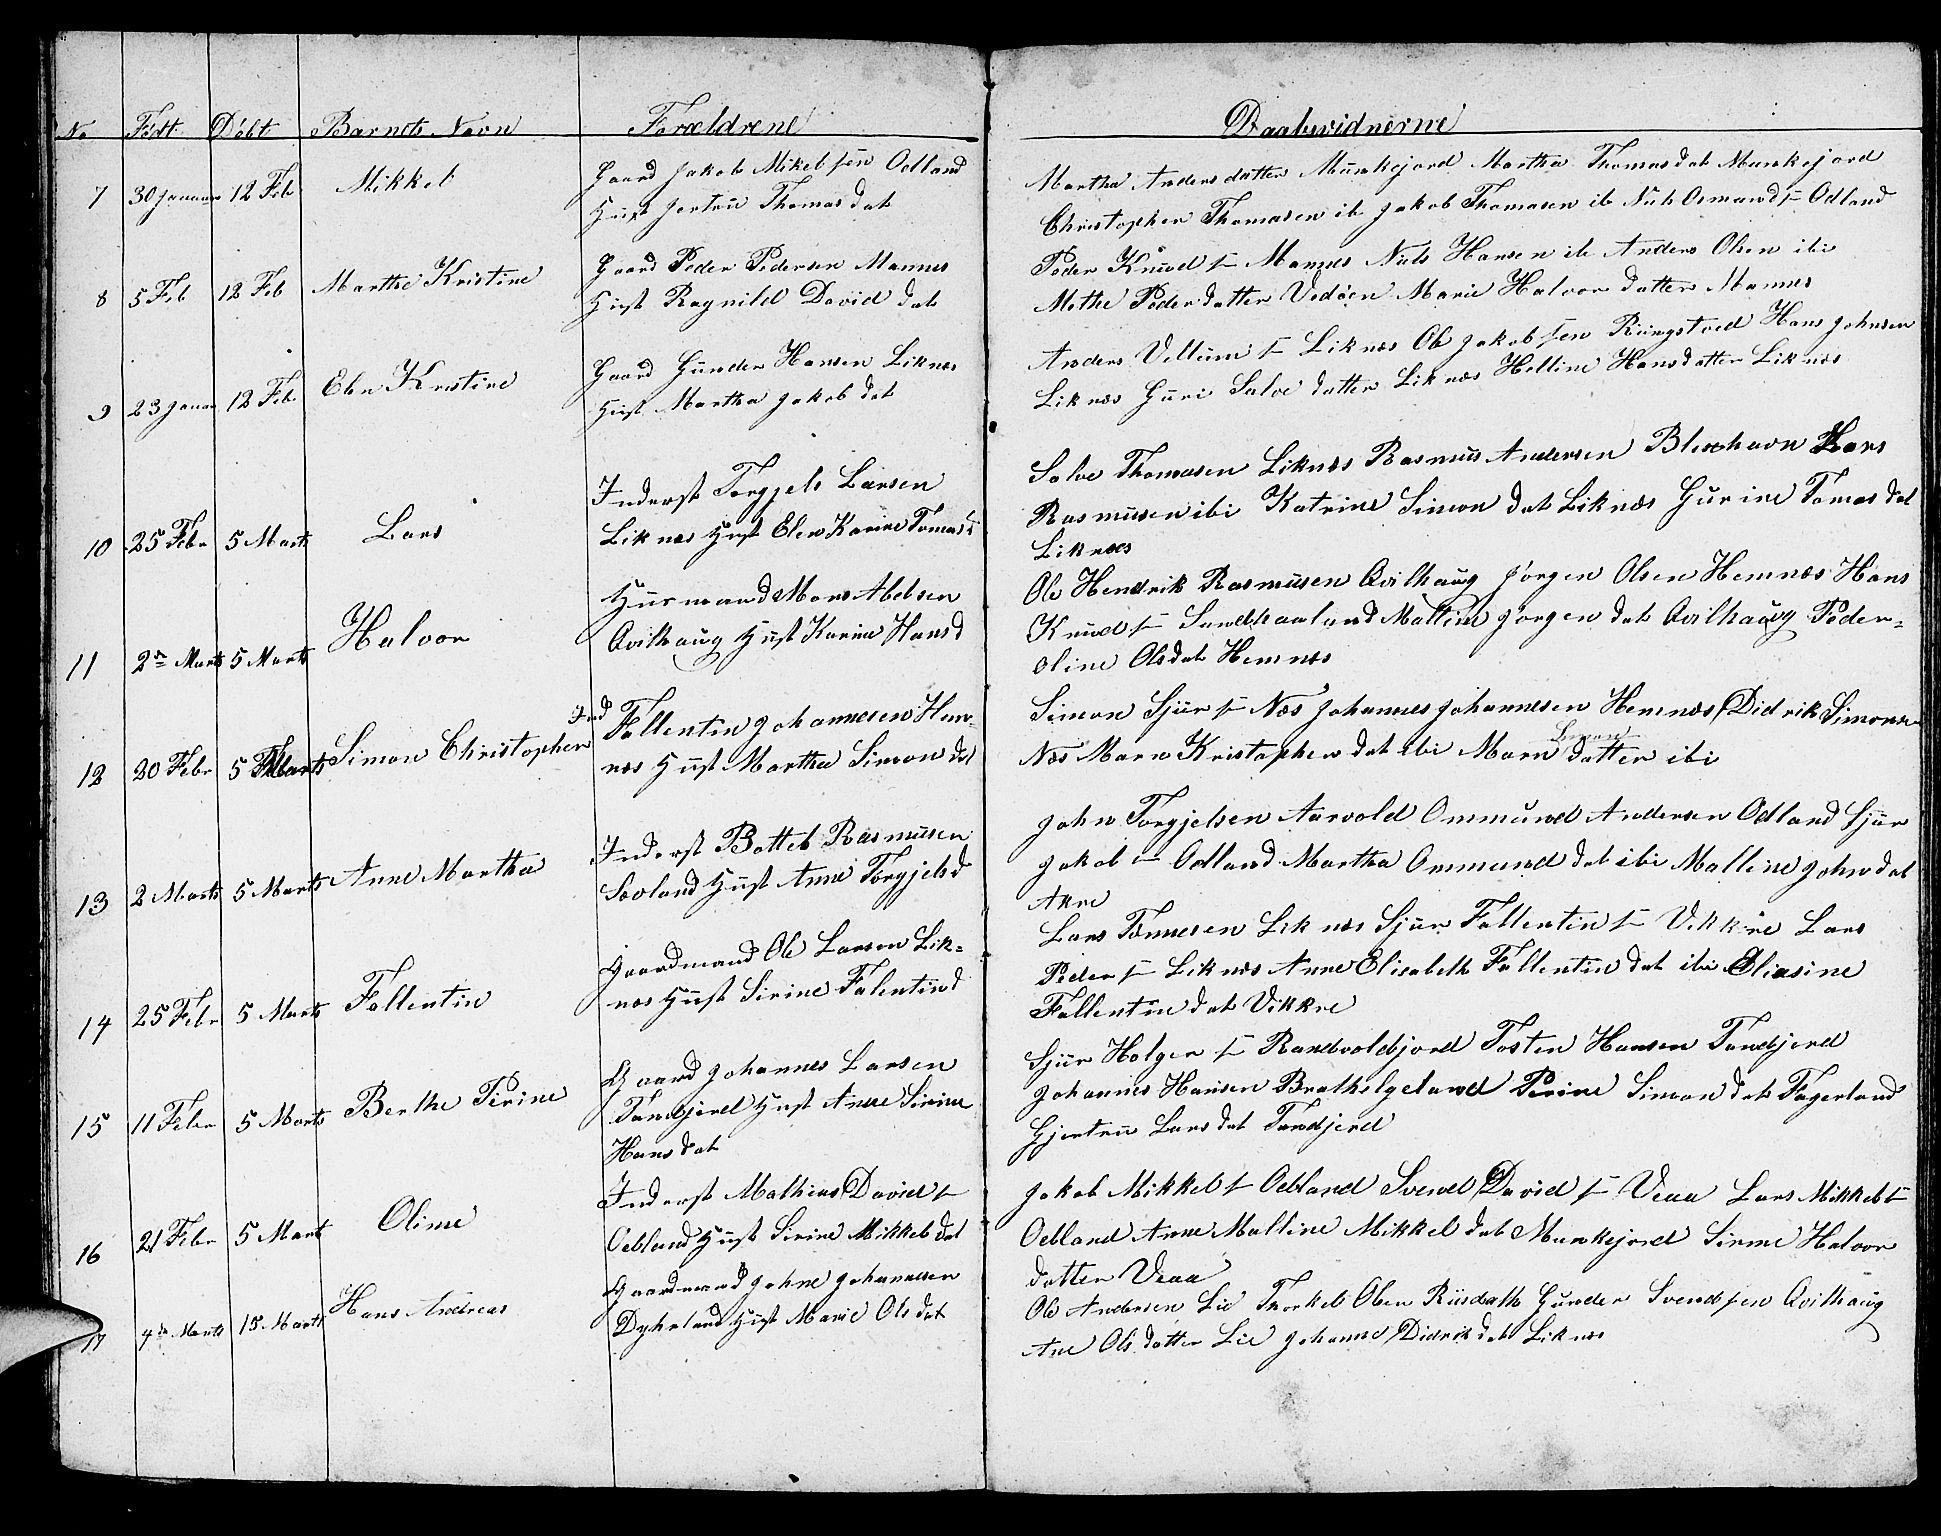 No Födt Döbt Barnets Navn Forældrene Daabsvidnerne
7 30 Januar 12 Feb Mikkel
Gaard Jakob Mikelsen Odland
Hust Jertru Thomasdat
Martha Andersdatter Munkejord Martha Thomasdat Munkejord
Christopher Thomasen ib Jakob Thomasen ib Nils Osmands– Odland
8 5 Feb 12 Feb Marthe Kristine
Gaard Peder Pedersen Mannes
Hust Ragnild Daviddat
Peder Knuds– Mannes Niels Hansen ib Anders Olsen ibi
Mothe Pederdatter Vedöen Marie Halvordatter Mannes
9 23 Januar 12 Feb Elen Kristine
Gaard Gunder Hansen Liknes
Hust Martha Jakobdat
Anders Vellums– Liknes Ole Jakobsen Ringstved Hans Johnsen
Liknes Guri Salvedatter Liknes Helline Hansdatter Liknes
10 25 Febr 5 Marts Lars
Inderst Torgjels Larsen
Liknes Hust Elen Karine Tomasd
Salve Thomasen Liknes Rasmus Andersen Blexhavn Lars
Rasmusen ibi Katrine Simondat Liknes Gurine Tomasdat
Liknes
11 2den Marts 5 Marts Halvor
Husmand Mons Abelsen
Qvilhaug Hust Karine Hansd
Ole Hendrik Rasmusen Qvilhaug Jörgen Olsen Hemnes Hans
Knuds– Sandhaaland Malline Jörgendat Qvilhaug Peder=
oline Olsdat Hemnes
12 20 Febr 5 Marts Simon Christopher
Ind Fallentin Johannesen Hem-
nes Hust Martha Simondat
Simon Sjurs– Nes Johannes Johannesen Hemnes Didrik Simonsen
Nes Maren Kristopherdat ibi Maren Simon datter ibi
13 2 Marts 5 Marts Anne Martha
Inderst Bottel Rasmusen
Sævland Hust Anne Torgjelsd
John Torgjelsen Aarvold Ommund Andersen Odland Sjur
Jakobs– Odland Martha Ommunddat ibi Malline Johndat
Akre
14 25 Febr 5 Marts Fallentin
Gaardmand Ole Larsen Lik=
nes Hust Sirine Falentind
Lars Tönnesen Liknes Sjur Fallentins– Vikkre Lars
Peders– Liknes Anne Elisabeth Fallentindat ibi Eliasine
Fallentindat Vikkre
15 11 Febr 5 Marts Berthe Perine
Gaard Johannes Larsen
Tandjerd Hust Anne Sirine
Hansdat
Sjur Holgers– Randvoldjord Tosten Hansen Tandjerd
Johannes Hansen Brathelgeland Perine Simondat Fagerland
Gjertru Larsdat Tandjerd
16 21 Febr 5 Marts Oline
Inderst Mathias Davids–
Oebland Hust Sirine Mikkeldat
Jakob Mikkels– Oebland Svend Davids– Veaa Lars Mikkels–
Oebland Anne Malline Mikkeldat Munkejord Sirine Halvor
datter Veaa
17 4de Marts 15 Marts Hans Andreas
Gaardmand John Johannesen
Dyhrland Hust Marie Olsdat
Ole Andersen Lie Thorkel Olsen Gunder Svendsen Qvilhaug
Ane Olsdatter Lie Johanne Didrikdat Liknes